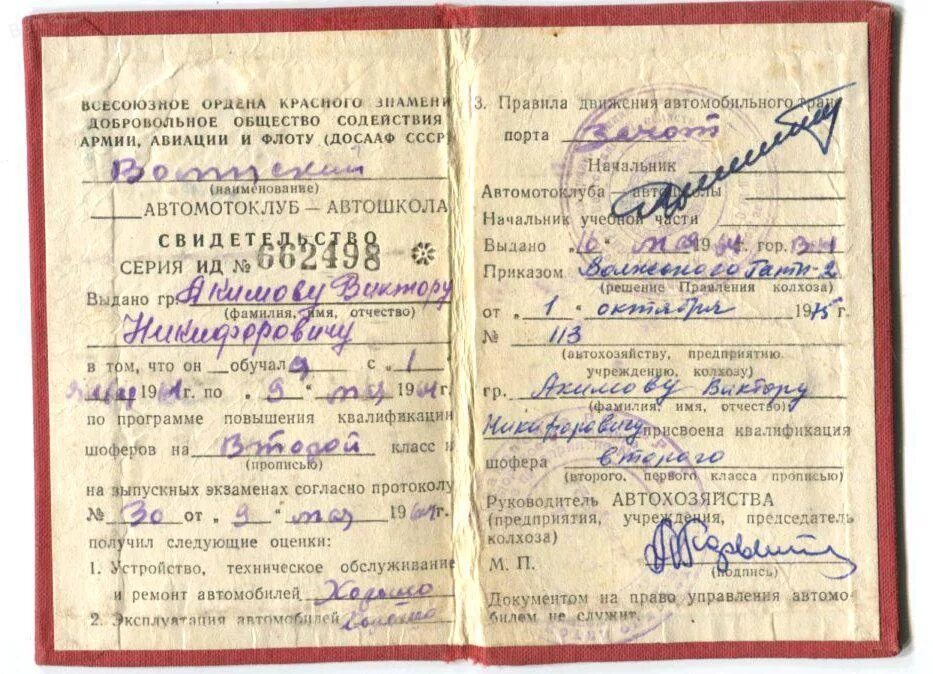 ВСЕСОЮЗНОЕ ОРДЕНА КРАСНОГО ЗНАМЕНИ
ДОБРОВОЛЬНОЕ ОБЩЕСТВО СОДЕЙСТВИЯ
АРМИИ, АВИАЦИИ И ФЛОТУ (ДОСААФ СССР)
(наименование)
АВТОМОТОКЛУБ — АВТОШКОЛА
СВИДЕТЕЛЬСТВО
СЕРИЯ ИД № 662498
Выдано гр. Акимову Виктору
(фамилия, имя, отчество)
Никифоровичу
в том, что он обучался с „1
19 г. по „9“ мая 19 г.
по программе повышения квалификации
шоферов на Второй класс и
(прописью)
на выпускных экзаменах согласно протоколу
№ 30 от „9“ мая 19 г.
получил следующие оценки:
1. Устройство, техническое обслуживание
и ремонт автомобилей Хорошо
2. Эксплуатация автомобилей Хорошо
3. Правила движения автомобильного транс
порта Зачот
Начальник
Автомотоклуба — автошколы
Начальник учебной части
Выдано „10“ мая 19 г. гор.
Приказом
(решение Правления колхоза)
от „1“ октября 19 г.
№ 113
(автохозяйству, предприятию
учреждению, колхозу)
гр. Акимову Виктору
(фамилия, имя, отчество)
Никифоровичу присвоена квалификация
шофера второго
(второго, первого класса прописью)
Руководитель АВТОХОЗЯЙСТВА
(предприятия, учреждения, председатель
колхоза)
М. П. (подпись)
Документом на право управления автомо-
билем не служит.